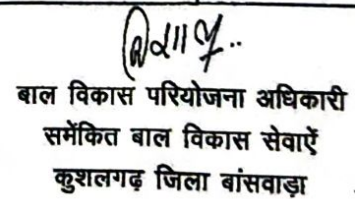 बाल विकास परियोजना अधिकारी
समेंकित बाल विकास सेवाऐं
कुशलगढ़ जिला बांसवाड़ा